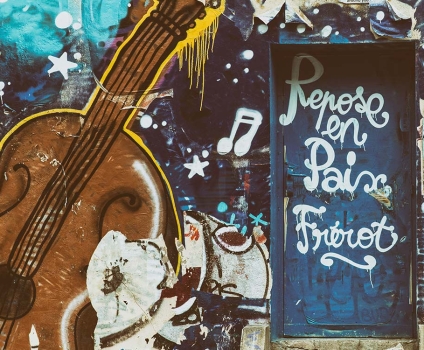 Repose
en
Paix
Frérot